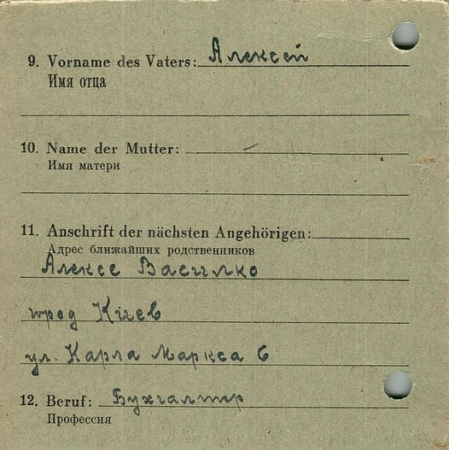 9. Vorname des Vaters: Алексей
Имя отца
10. Name der Mutter: —
Имя матери
11. Anschrift der nächsten Angehörigen:
Адрес ближайших родственников
Алексе Василко
город Кіев
ул. Карла Маркса 6
12. Beruf: Бухгалтр
Профессия